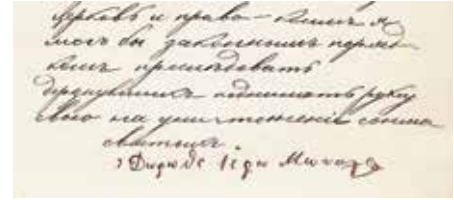 Церковь и право – коимъ я
могъ бы законнымъ поряд-
комъ преслѣдовать
дерзнувшихъ поднимать руку
свою на уничтоженіе сонма
святыхъ.